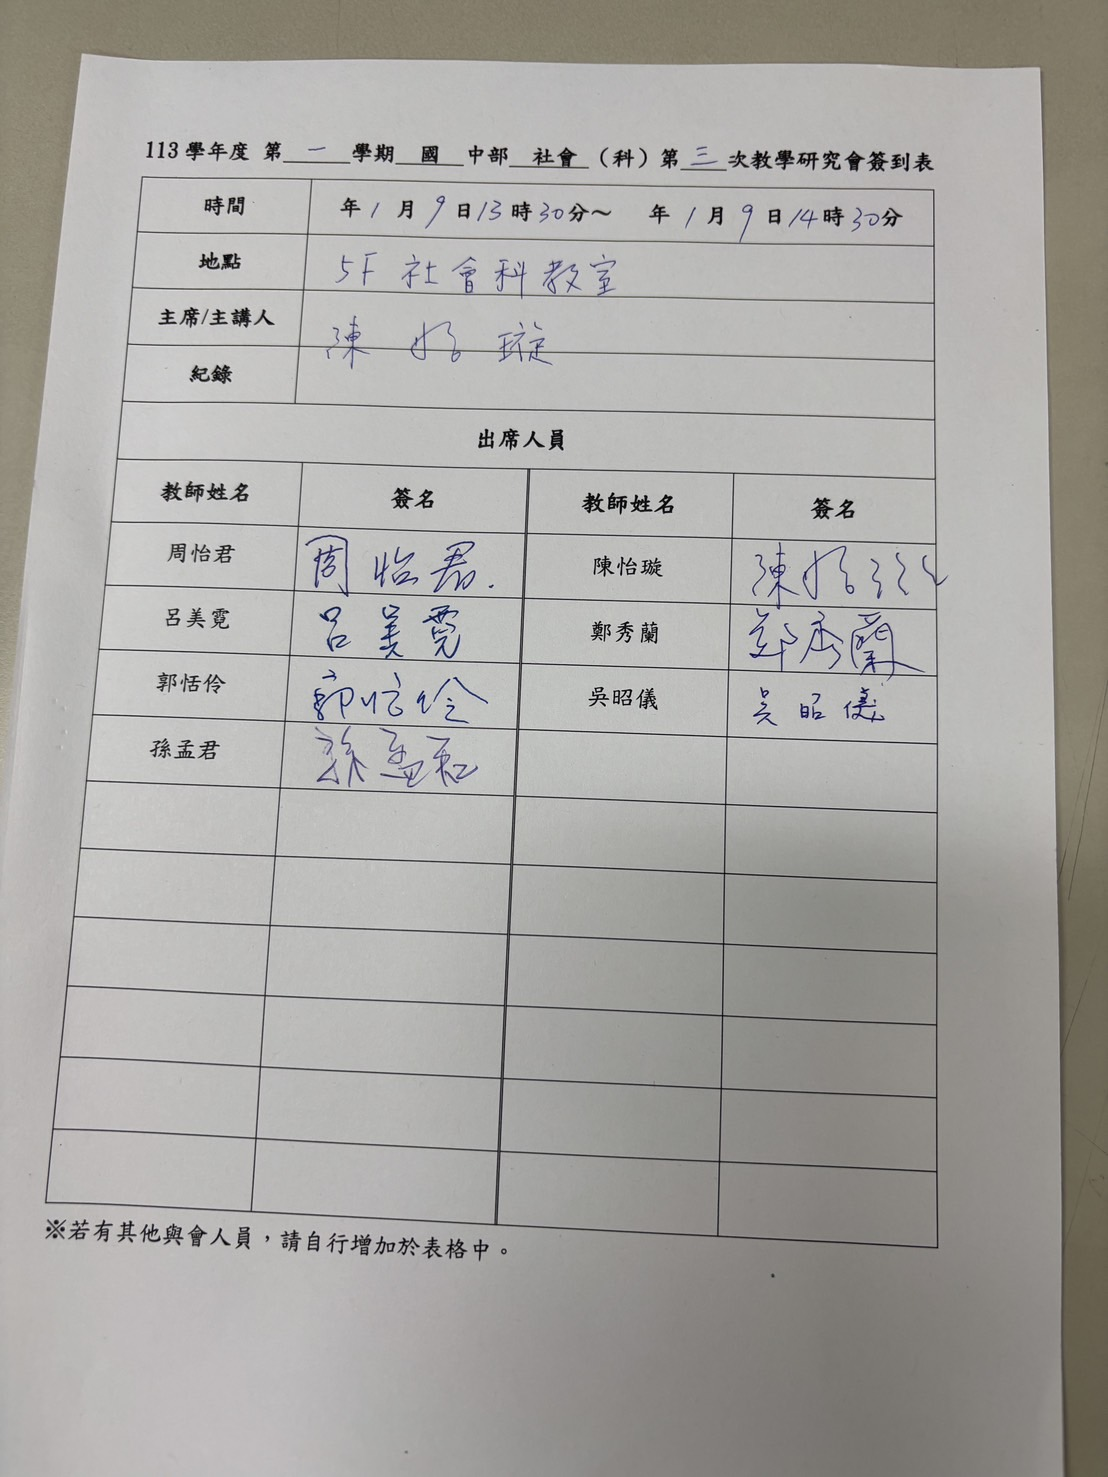 113 學年度 第 一 學期 國 中部 社會 （科）第 三 次教學研究會簽到表
時間 年 1 月 9 日 13 時 30 分～ 年 1 月 9 日 14 時 30 分
地點 5F 社會科教室
主席/主講人 陳怡璇
紀錄
出席人員
教師姓名 簽名 教師姓名 簽名
周怡君 周怡君. 陳怡璇 陳怡璇
呂美霓 呂美霓 鄭秀蘭 鄭秀蘭
郭恬伶 郭恬伶 吳昭儀 吳昭儀
孫孟君 孫孟君
※若有其他與會人員，請自行增加於表格中。